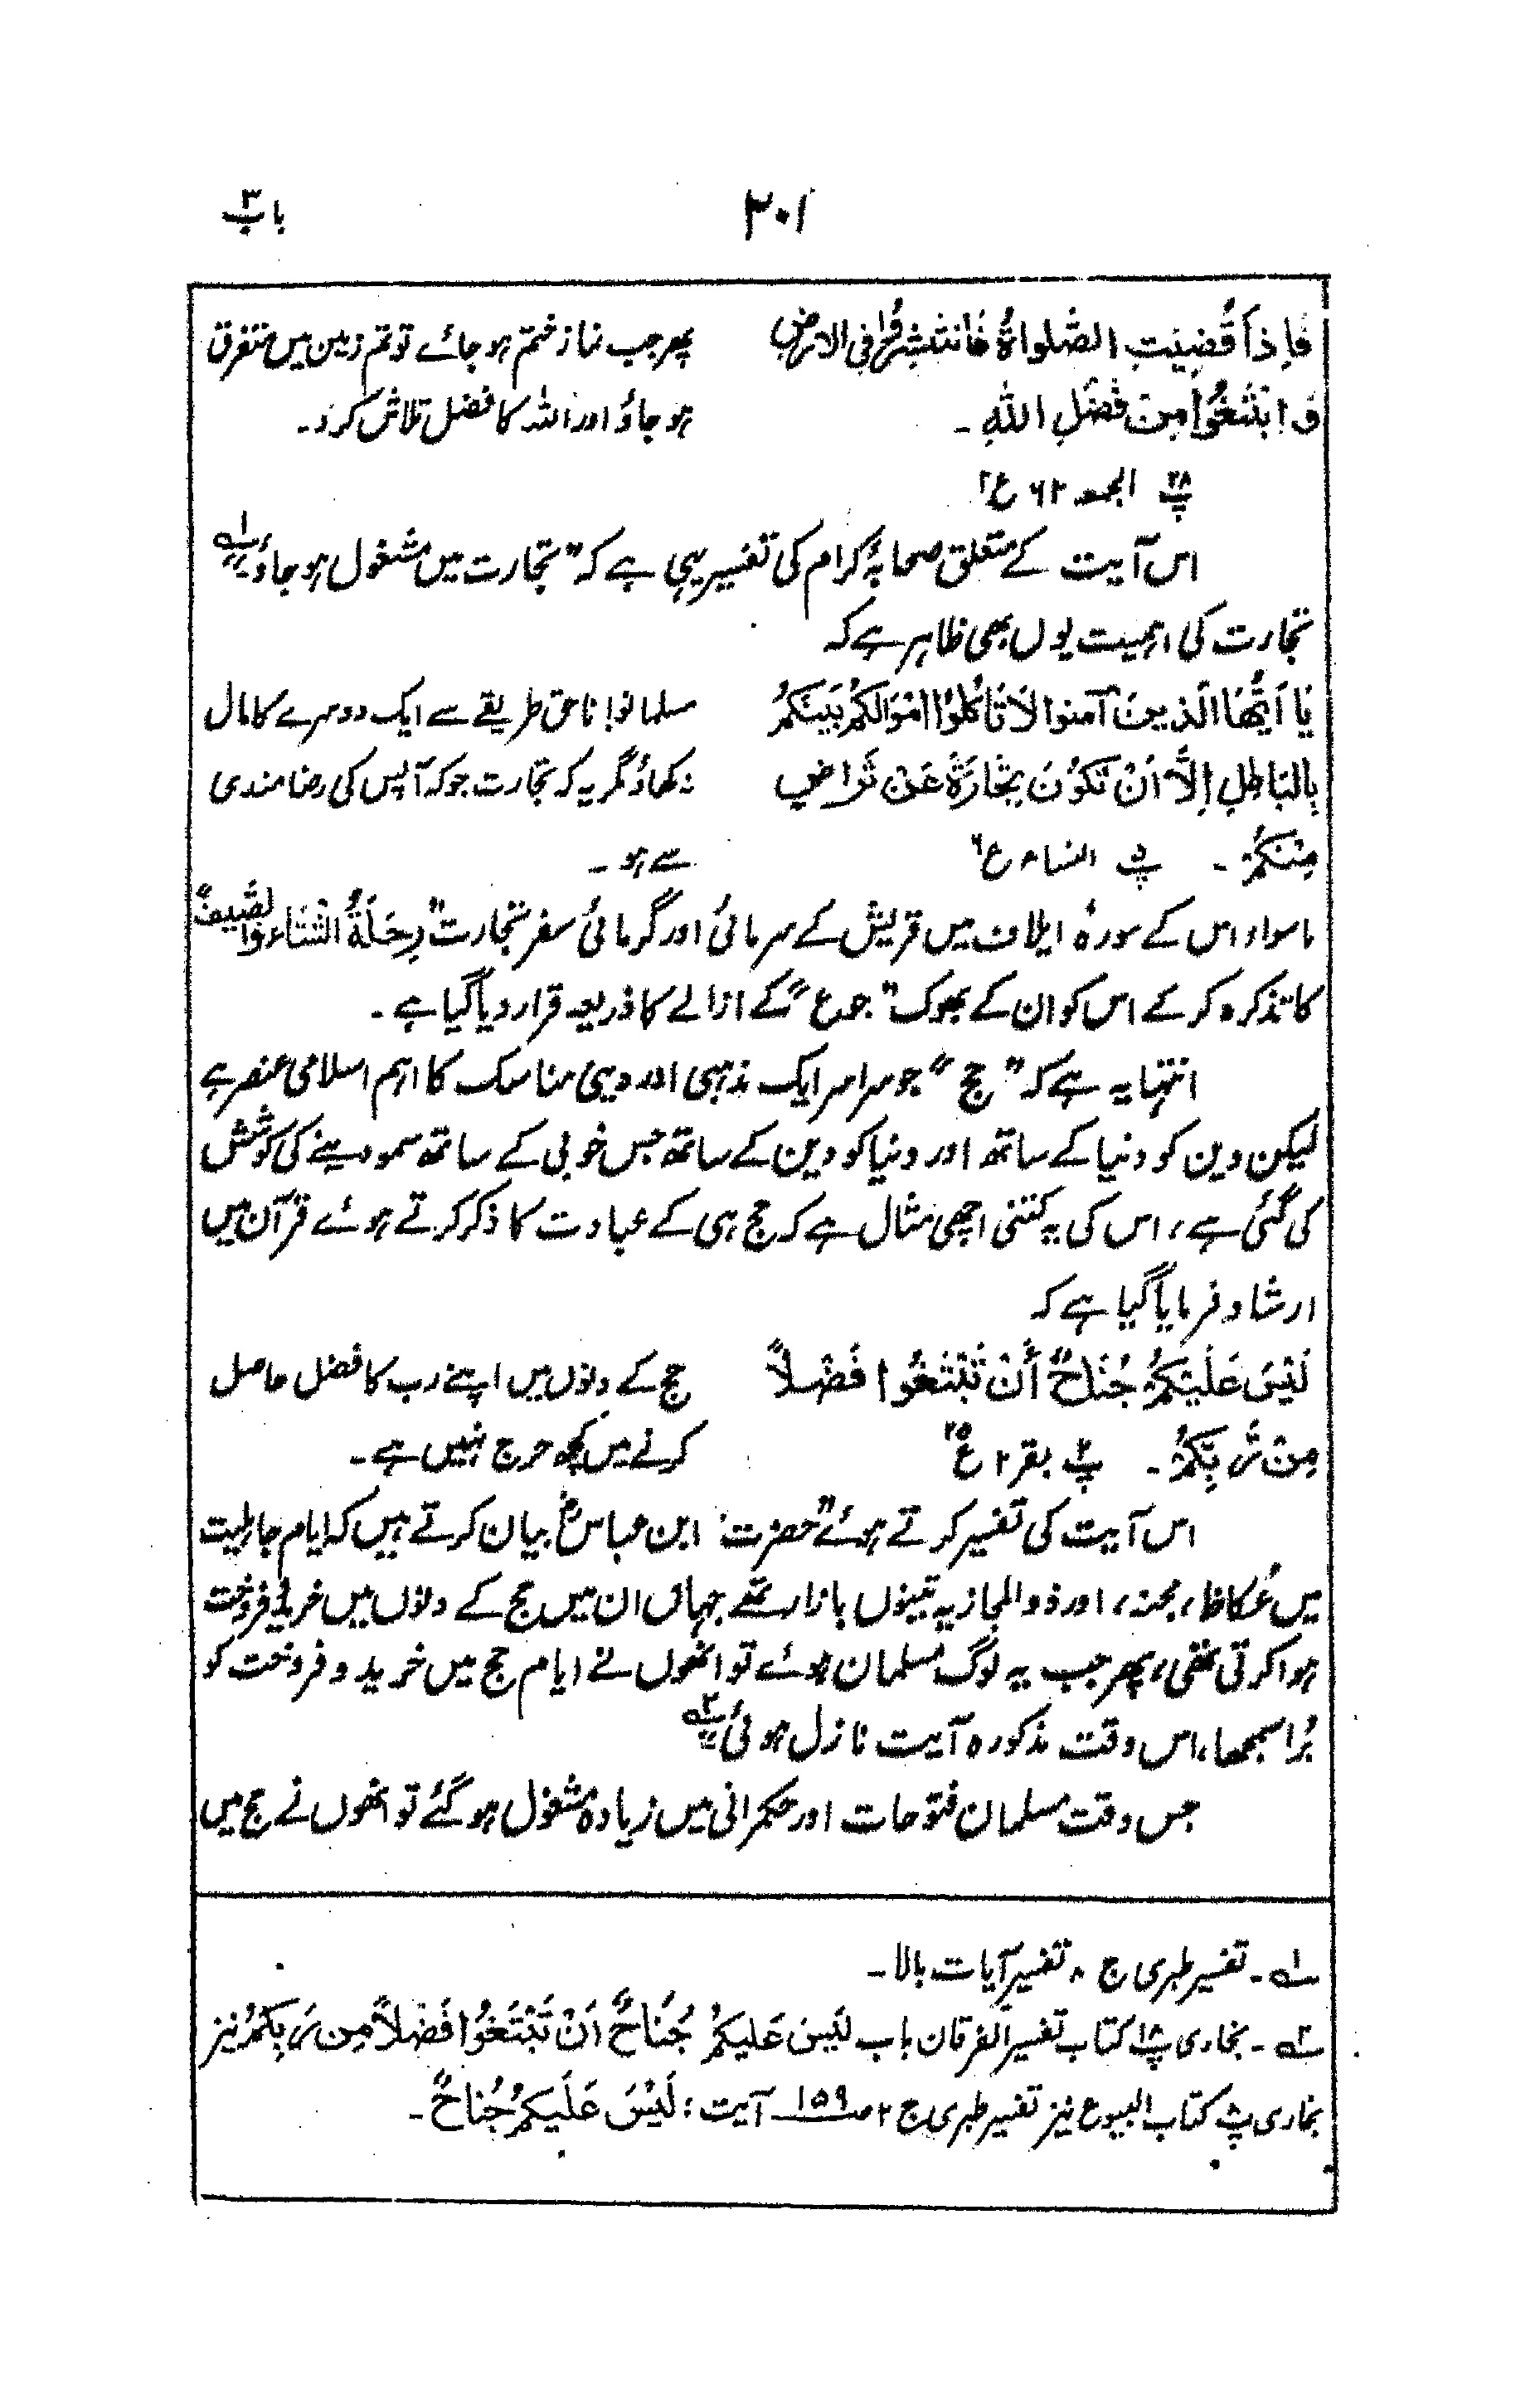 باب ۳
۲۰۱
فَاِذَا قُضِيَتِ الصَّلوٰةُ فَانْتَشِرُوْا فِی الارضِ پھر جب نماز ختم ہو جائے تو تم زمین میں متفرق
وَابْتَغُوْا مِنْ فَضْلِ اللّٰهِ ۔ ہو جاؤ اور اللہ کا فضل تلاش کرو۔
پ ۲۸ الجمعہ ۶۲ ع ۲
اس آیت کے متعلق صحابۂ کرام کی تفسیر یہی ہے کہ "تجارت میں مشغول ہو جاؤ" ۱ے
تجارت کی اہمیت یوں بھی ظاہر ہے کہ
يَا اَيُّهَا الَّذِينَ آمنوا لَا تَاْكُلُوْا اَمْوَالَكُمْ بَيْنَكُمْ مسلمانو! ناحق طریقے سے ایک دوسرے کا مال
بِالْبَاطِلِ اِلَّا اَنْ تَكُوْنَ تِجَارَةً عَنْ تَرَاضٍ نہ کھاؤ مگر یہ کہ تجارت جو کہ آپس کی رضامندی
مِنْكُمْ ۔ پ ۵ النساء ۴ ع ۶ سے ہو ۔
ماسواء اس کے سورۂ ایلاف میں قریش کے سرمائی اور گرمائی سفر تجارت "رِحْلَةُ الشِّتَاءِ وَالصَّيْفِ"
کا تذکرہ کر کے اس کو ان کے بھوک "جوع" کے ازالے کا ذریعہ قرار دیا گیا ہے ۔
انتہا یہ ہے کہ "حج" جو سراسر ایک مذہبی اور دینی مناسک کا اہم اسلامی عنصر ہے
لیکن دین کو دنیا کے ساتھ اور دنیا کو دین کے ساتھ جس خوبی کے ساتھ سمو دینے کی کوشش
کی گئی ہے، اس کی یہ کتنی اچھی مثال ہے کہ حج ہی کے عبادت کا ذکر کرتے ہوئے قرآن میں
ارشاد فرمایا گیا ہے کہ
لَيْسَ عَلَيْكُمْ جُنَاحٌ أَنْ تَبْتَغُوا فَضْلاً حج کے دنوں میں اپنے رب کا فضل حاصل
مِنْ رَّبِّكُمْ ۔ پ ۲ بقر ۲ ع ۲۵ کرنے میں کچھ حرج نہیں ہے ۔
اس آیت کی تفسیر کرتے ہوئے "حضرت ابن عباسؓ بیان کرتے ہیں کہ ایام جاہلیت
میں عُکاظ، مجنہ، اور ذوالمجاز یہ تینوں بازار تھے جہاں ان میں حج کے دنوں میں خرید و فروخت
ہوا کرتی تھی، پھر جب یہ لوگ مسلمان ہوئے تو انھوں نے ایام حج میں خرید و فروخت کو
بُرا سمجھا، اس وقت مذکورہ آیت نازل ہوئی" ۲ے
جس وقت مسلمان فتوحات اور حکمرانی میں زیادہ مشغول ہو گئے تو انھوں نے حج میں
۱ے ۔ تفسیر طبری ج ۸ تفسیر آیات بالا ۔
۲ے ۔ بخاری پ ۱۸ کتاب تفسیر الفرقان باب لَيْسَ عَلَيكُمْ جُنَاحٌ اَنْ تَبْتَغُوْا فَضْلاً مِن رَبِّكُمْ نیز
بخاری پ ۸ کتاب البیوع نیز تفسیر طبری ج ۲ صـ ۱۵۹ آیت : لَيْسَ عَلَيكُمْ جُنَاحٌ ۔